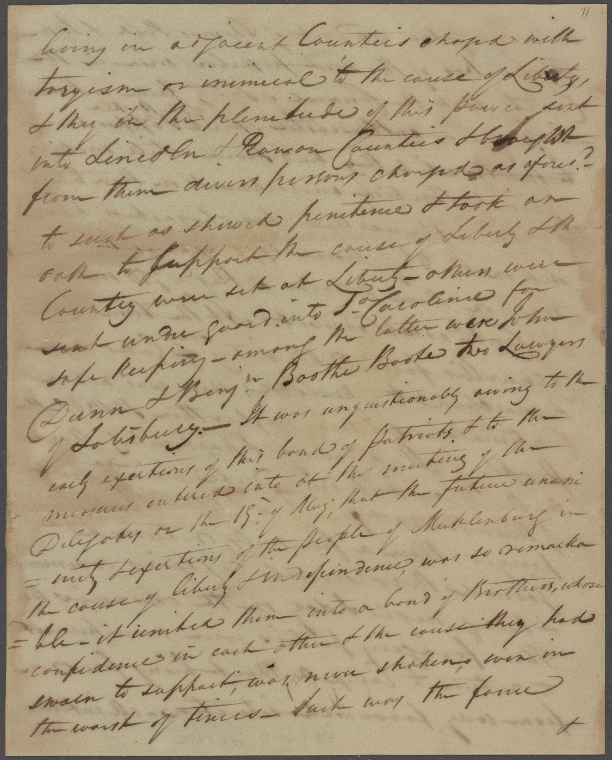 11
living in adjacent Counties charged with
toryism or inimical to the cause of Liberty,
& they in the plenitude of this power sent
into Lincoln & Rowan Counties & brought
from them divers persons charged as aforesd.
to such as shewed penitence & took an
oath to support the cause of Liberty & the
Country were set at Liberty – others were
sent under guard into So. Carolina for
safe keeping – among the latter were John
Dunn & Benjn. Boothe Boote two Lawyers
of Salisbury. – It was unquestionably owing to the
early exertions of this band of patriots, & to the
measures entered into at the meeting of the
Delegates on the 19th of May, that the future unani
=mity & exertions of the people of Mecklenburg in
the cause of liberty & independence, was so remarka
=ble – it united them into a band of Brothers, whose
confidence in each other & the cause they had
sworn to support, was never shaken, even in
the worst of times – Such was the fame